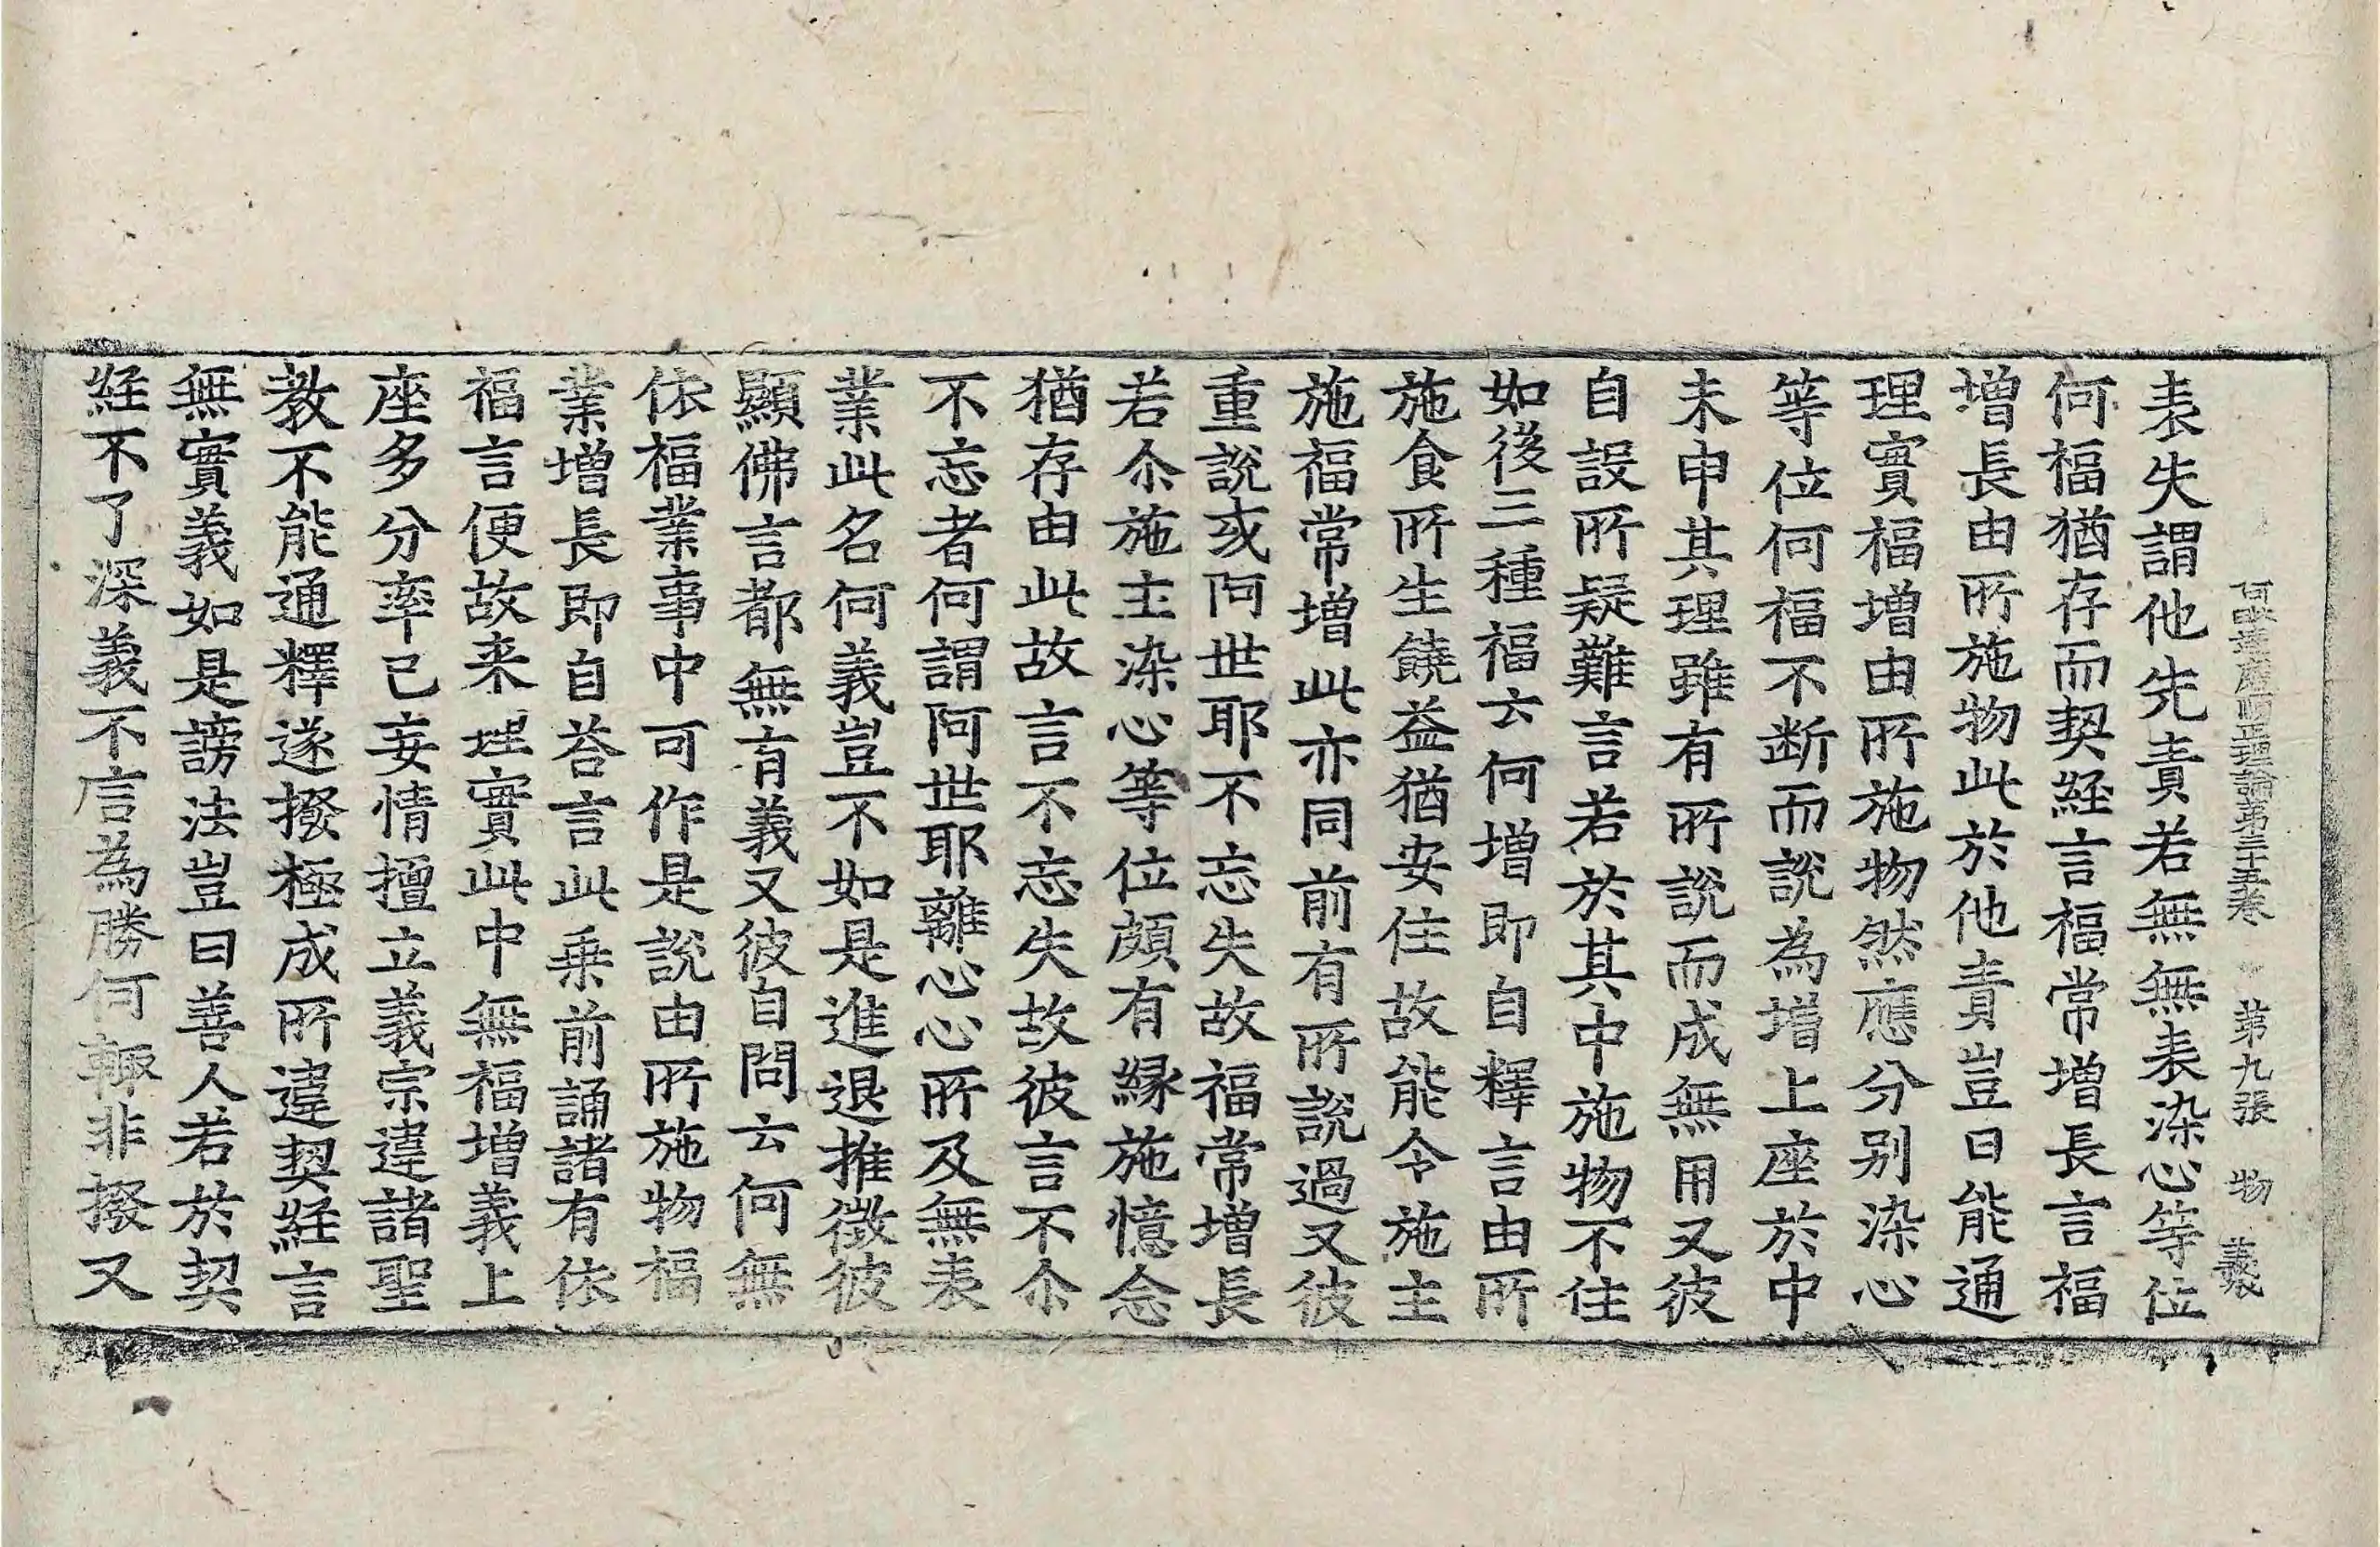 阿毗達磨順正理論第三十五卷 第九張 物 義
表失謂他先責若無無表染心等位
何福猶存而契経言福常增長言福
增長由所施物此於他責豈曰能通
理實福增由所施物然應分別染心
等位何福不断而說為增上座於中
未申其理雖有所說而成無用又彼
自設所疑難言若於其中施物不住
如後三種福云何增即自釋言由所
施食所生饒益猶安住故能令施主
施福常增此亦同前有所說過又彼
重說或阿世耶不忘失故福常增長
若尒施主染心等位頗有緣施憶念
猶存由此故言不忘失故彼言不尒
不忘者何謂阿世耶離心心所及無表
業此名何義豈不如是進退推徵彼
顯佛言都無有義又彼自問云何無
依福業事中可作是說由所施物福
業增長即自荅言此乗前誦諸有依
福言便故来理實此中無福增義上
座多分率己妄情擅立義宗違諸聖
教不能通釋遂撥極成所違契経言
無實義如是謗法豈曰善人若於契
経不了深義不言為勝何輙非撥又